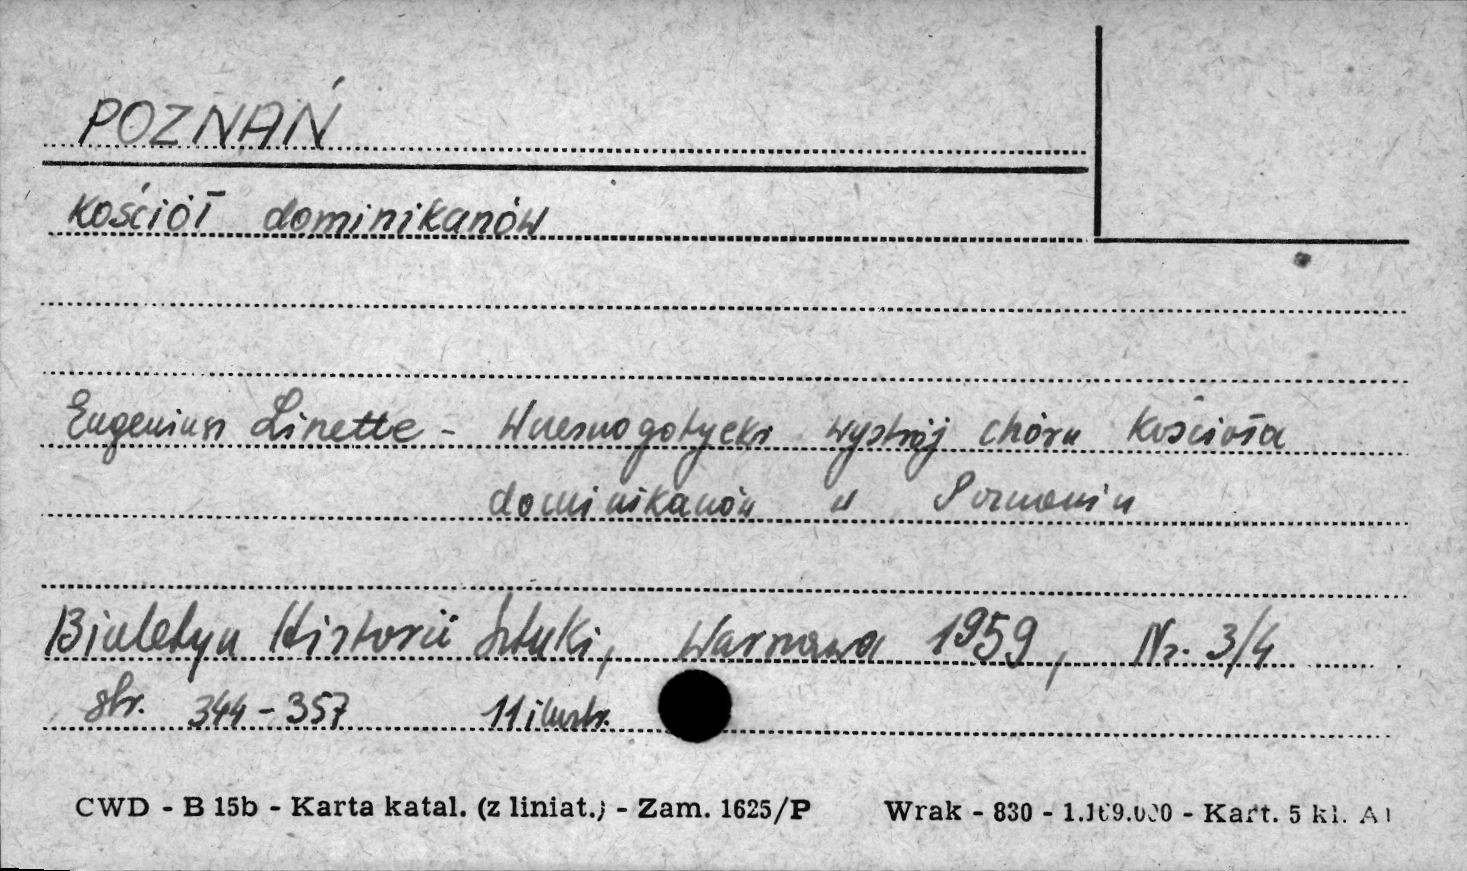 POZNAŃ
Kościół dominikanów
Eugeniusz Linette - Wczesnogotycki wystrój chóru Kościoła
dominikanów w Poznaniu
Biuletyn Historii Sztuki, Warszawa 1959, Nr. 3/4
str. 344-357 11 ilustr.
CWD - B 15b - Karta katal. (z liniat.) - Zam. 1625/P Wrak - 830 - - Kart. 5 kl. A1